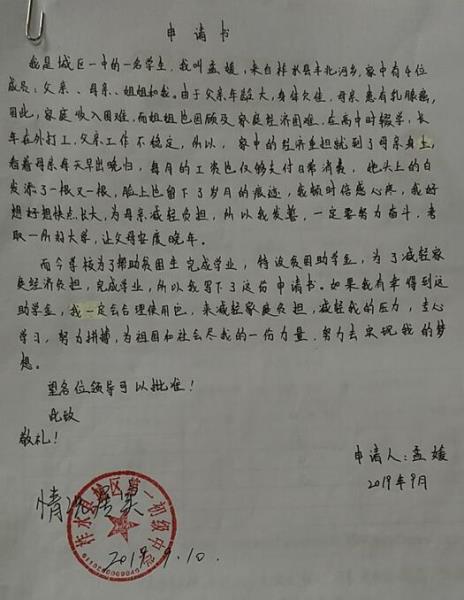 申请书
我是城区一中的一名学生，我叫孟媛，来自柞水县丰北河乡，家中有4位
成员：父亲、母亲、姐姐和我。由于父亲年龄大，身体欠佳，母亲患有乳腺癌，
因此，家庭收入困难，而姐姐也因顾及家庭经济困难，在高中时辍学，长
年在外打工，父亲工作不稳定，所以，家中的经济重担就到了母亲身上，
看着母亲每天早出晚归，每月的工资也仅够支付日常消费，她头上的白
发添了一根又一根，脸上也留下了岁月的痕迹，我顿时倍感心疼，我好
想好想快点长大，为母亲减轻负担，所以我发誓，一定要努力奋斗，考
取一所好大学，让父母安度晚年。
而今学校为了帮助贫困生完成学业，特设贫困助学金，为了减轻家
庭经济负担，完成学业，所以我写下了这份申请书。如果我有幸得到这
助学金，我一定会合理使用它，来减轻家庭负担，减轻我的压力，专心
学习，努力拼搏，为祖国和社会尽我的一份力量，努力去实现我的梦
想。
望各位领导可以批准！
此致
敬礼！
申请人：孟媛
2019年9月
情况属实
柞水县城区第一初级中学
2019.9.10.